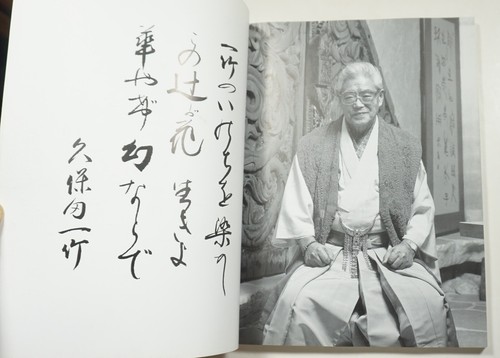 一竹のいのちを染めし
この辻が花 生きよ
華やぎ 幻ならで
久保田一竹